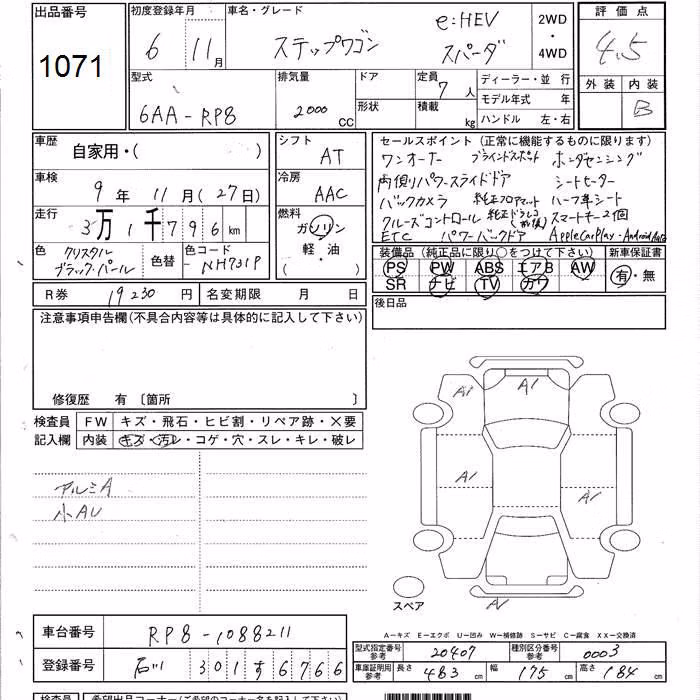 出品番号
1071
初度登録年月 車名・グレード
6 11月 ステップワゴン e:HEV スパーダ
2WD
・
4WD
評価点
4.5
外装 内装
B
型式
6AA-RP8
排気量
2000 CC
ドア
形状
定員 7 人
積載 kg
ディーラー・並 行
モデル年式 年
ハンドル 左・右
車歴
自家用・( )
車検
9 年 11 月(27日)
走行
3万1千796km
色
クリスタル
ブラック・パール
色替
色コード
NH731P
シフト
AT
冷房
AAC
燃料
ガソリン
軽・油
( )
セールスポイント(正常に機能するものに限ります)
ワンオーナー ブラインドスポット ホンダセンシング
両側パワースライドドア シートヒーター
バックカメラ 純正フロアマット ハーフ革シート
クルーズコントロール 純正ドラレコ スマートキー2個
ETC パワーバックドア AppleCarPlay・AndroidAuto
装備品(純正品に限り○をつけて下さい) 新車保証書
PS PW ABS エアB AW
SR ナビ TV カワ
有・無
後日品
R券 19230 円 名変期限 月 日
注意事項申告欄(不具合内容等は具体的に記入して下さい)
修復歴 有〔箇所 〕
検査員 FW キズ・飛石・ヒビ割・リペア跡・×要
記入欄 内装 キズ・汚レ・コゲ・穴・スレ・キレ・破レ
アルミA
小AU
A1
A1
A1
A1
A1
スペア
A-キズ E-エクボ U-凹み W-補修跡 S-サビ C-腐食 XX-交換済
車台番号 RP8-1088211
登録番号 石川 301す6766
型式指定番号 参考 20407 種別区分番号 参考 0003
車庫証明用 参考 長さ 483 cm 幅 175 cm 高さ 184 cm
検査員 希望出品コーナー(ご希望のコーナー名を記入して下さい)